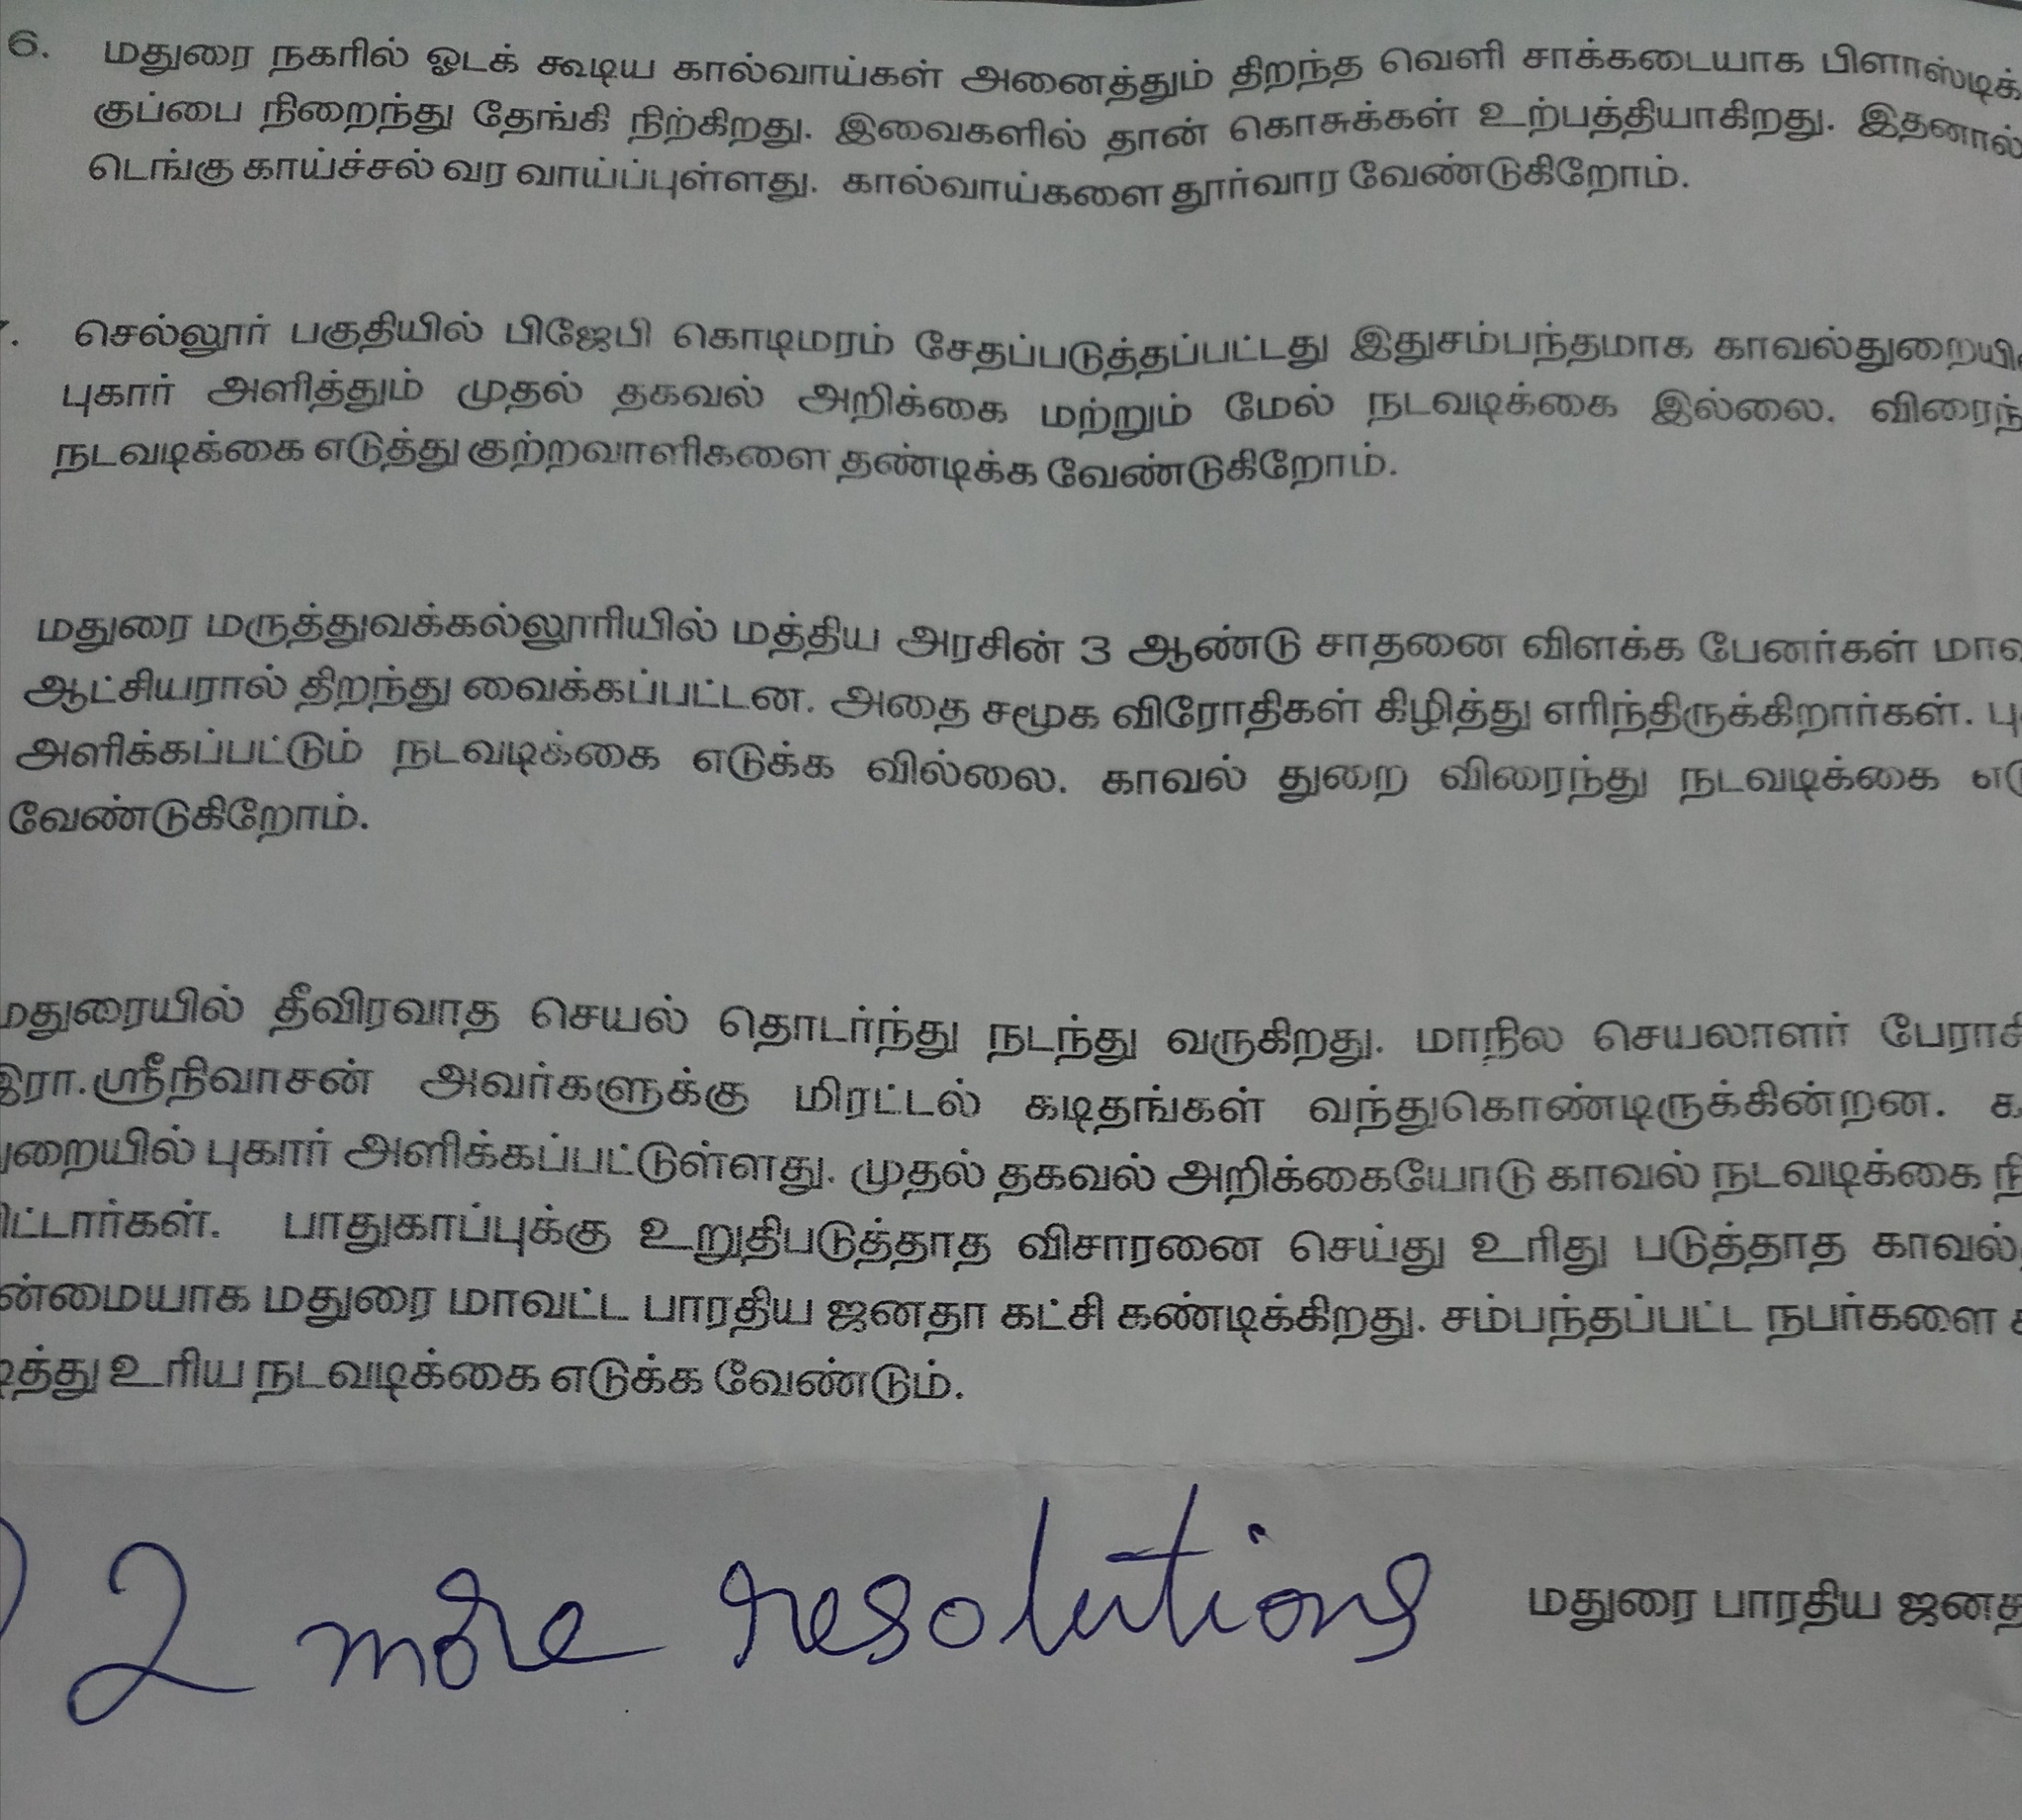 6. மதுரை நகரில் ஓடக் கூடிய கால்வாய்கள் அனைத்தும் திறந்த வெளி சாக்கடையாக பிளாஸ்டிக்
குப்பை நிறைந்து தேங்கி நிற்கிறது. இவைகளில் தான் கொசுக்கள் உற்பத்தியாகிறது. இதனால்
டெங்கு காய்ச்சல் வர வாய்ப்புள்ளது. கால்வாய்களை தூர்வார வேண்டுகிறோம்.
செல்லூர் பகுதியில் பிஜேபி கொடிமரம் சேதப்படுத்தப்பட்டது இதுசம்பந்தமாக
புகார் அளித்தும் முதல் தகவல் அறிக்கை மற்றும் மேல் நடவடிக்கை இல்லை.
நடவடிக்கை எடுத்து குற்றவாளிகளை தண்டிக்க வேண்டுகிறோம்.
மதுரை மருத்துவக்கல்லூரியில் மத்திய அரசின் 3 ஆண்டு சாதனை விளக்க பேனர்கள்
ஆட்சியரால் திறந்து வைக்கப்பட்டன. அதை சமூக விரோதிகள் கிழித்து எரிந்திருக்கிறார்கள்.
அளிக்கப்பட்டும் நடவடிக்கை எடுக்க வில்லை. காவல் துறை விரைந்து நடவடிக்கை
வேண்டுகிறோம்.
மதுரையில் தீவிரவாத செயல் தொடர்ந்து நடந்து வருகிறது. மாநில செயலாளர்
இரா.ஸ்ரீநிவாசன் அவர்களுக்கு மிரட்டல் கடிதங்கள் வந்துகொண்டிருக்கின்றன.
புகார் அளிக்கப்பட்டுள்ளது. முதல் தகவல் அறிக்கையோடு காவல் நடவடிக்கை
பாதுகாப்புக்கு உறுதிபடுத்தாத விசாரனை செய்து உரிது படுத்தாத காவல்
மதுரை மாவட்ட பாரதிய ஜனதா கட்சி கண்டிக்கிறது. சம்பந்தப்பட்ட நபர்களை
உரிய நடவடிக்கை எடுக்க வேண்டும்.
2 more resolutions
மதுரை பாரதிய